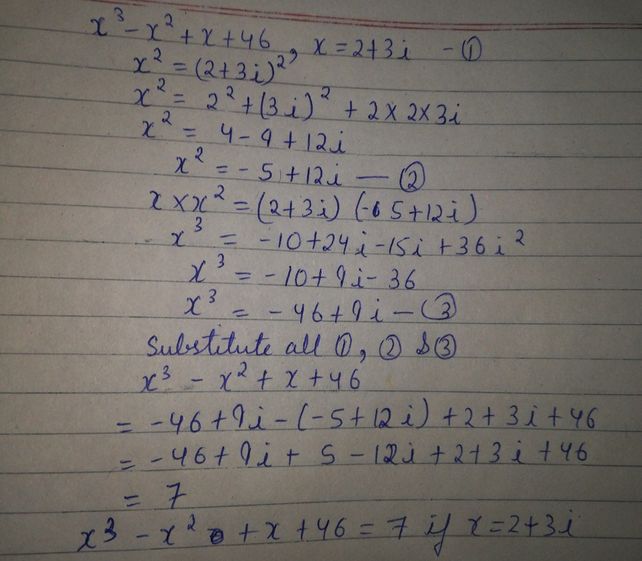 x³ - x² + x + 46, x = 2+3i - ①
x² = (2+3i)²
x² = 2² + (3i)² + 2×2×3i
x² = 4 - 9 + 12i
x² = -5 + 12i — ②
x × x² = (2+3i) (-5+12i)
x³ = -10+24i-15i+36i²
x³ = -10+9i-36
x³ = -46+9i - ③
Substitute all ①, ② & ③
x³ - x² + x + 46
= -46+9i-(-5+12i)+2+3i+46
= -46+9i+5-12i+2+3i+46
= 7
x³ - x² + x + 46 = 7 if x = 2+3i